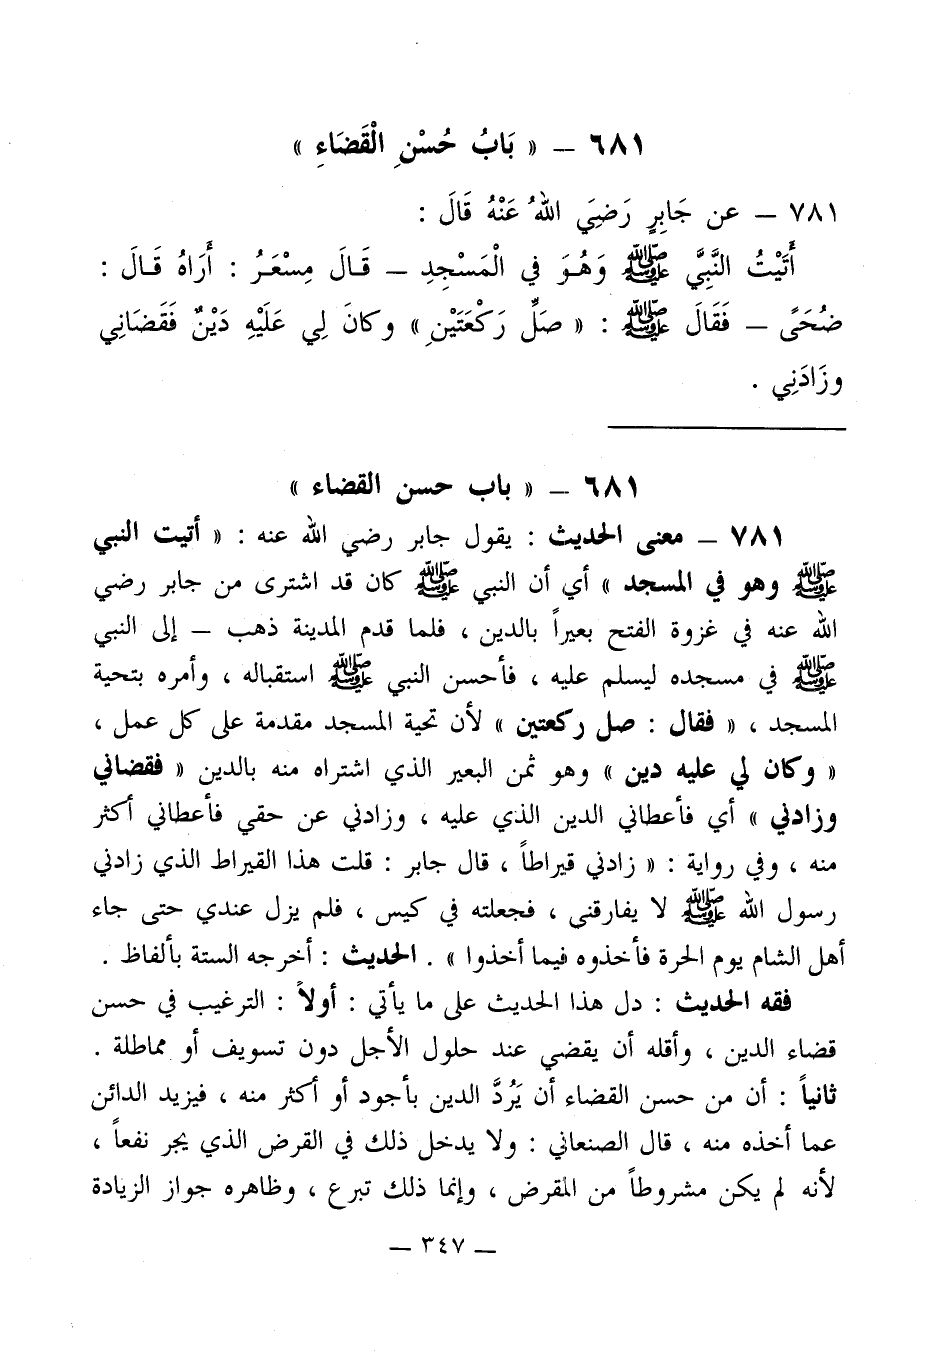 ٦٨١ – « بَابُ حُسْنِ الْقَضَاءِ »
٧٨١ – عن جَابِرٍ رَضِيَ اللهُ عَنْهُ قَالَ :
أَتَيْتُ النَّبِيَّ ﷺ وَهُوَ في الْمَسْجِدِ – قَـالَ مِسْعَـرُ : أُرَاهُ قَـالَ :
ضُحَىً – فَقَالَ ﷺ : « صَلِّ رَكْعَتَيْنِ » وكانَ لِي عَلَيْهِ دَيْنٌ فَقَضَانِي
وزَادَنِي .
٦٨١ – « باب حسن القضاء »
٧٨١ – معنى الحديث : يقول جابر رضي الله عنه : « أتيت النبي
ﷺ وهو في المسجد » أي أن النبي ﷺ كان قد اشترى من جابر رضي
الله عنه في غزوة الفتح بعيراً بالدين ، فلما قدم المدينة ذهب – إلى النبي
ﷺ في مسجده ليسلم عليه ، فأحسن النبي ﷺ استقباله ، وأمره بتحية
المسجد ، « فقال : صل ركعتين » لأن تحية المسجد مقدمة على كل عمل ،
« وكان لي عليه دين » وهو ثمن البعير الذي اشتراه منه بالدين « فقضاني
وزادني » أي فأعطاني الدين الذي عليه ، وزادني عن حقي فأعطاني أكثر
منه ، وفي رواية : « زادني قيراطاً ، قال جابر : قلت هذا القيراط الذي زادني
رسول الله ﷺ لا يفارقنى ، فجعلته في كيس ، فلم يزل عندي حتى جاء
أهل الشام يوم الحرة فأخذوه فيما أخذوا » . الحديث : أخرجه الستة بألفاظ .
فقه الحديث : دل هذا الحديث على ما يأتي : أولاً : الترغيب في حسن
قضاء الدين ، وأقله أن يقضي عند حلول الأجل دون تسويف أو مماطلة .
ثانياً : أن من حسن القضاء أن يَرُدَّ الدين بأجود أو أكثر منه ، فيزيد الدائن
عما أخذه منه ، قال الصنعاني : ولا يدخل ذلك في القرض الذي يجر نفعاً ،
لأنه لم يكن مشروطاً من المقرض ، وإنما ذلك تبرع ، وظاهره جواز الزيادة
– ٣٤٧ –